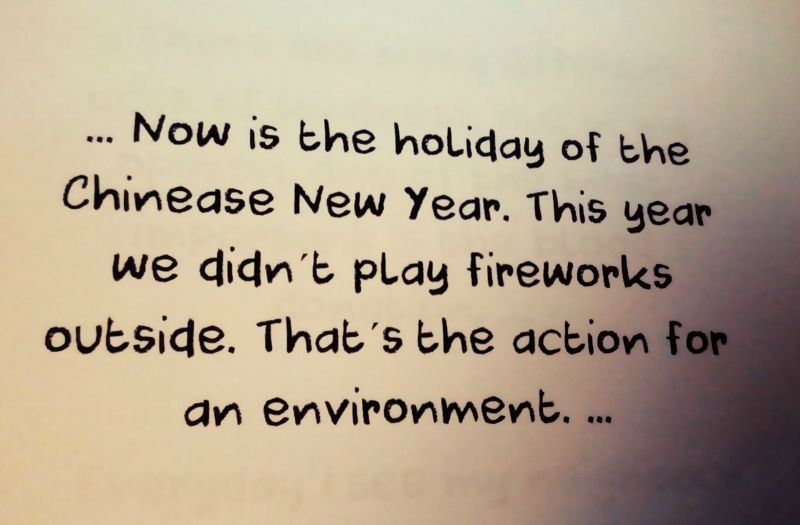 ... Now is the holiday of the
Chinease New Year. This year
we didn´t play fireworks
outside. That´s the action for
an environment. ...